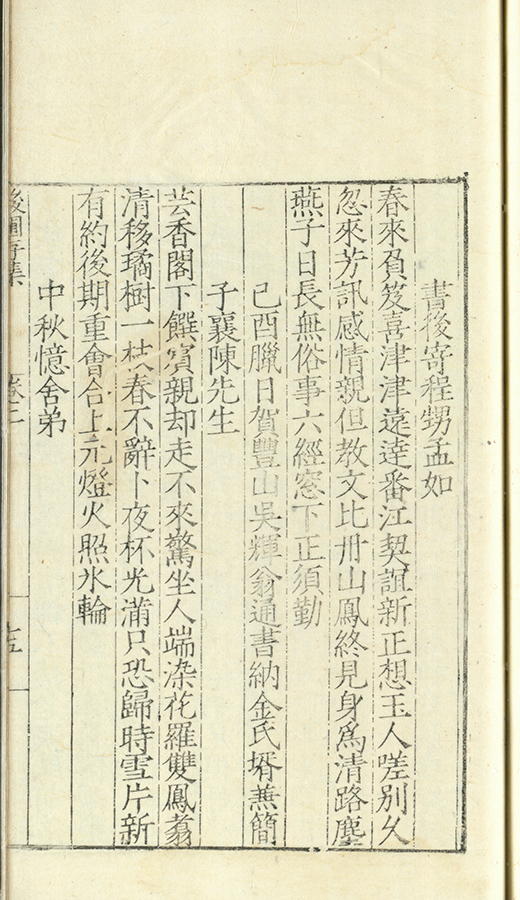 書後寄程甥孟如
春來負笈喜津津遠達番江契誼新正想玉人嗟別久
忽來芳訊感情親但教文比丹山鳳終見身為清路塵
燕子日長無俗事六經窓下正須勤
己酉臘日賀豐山吳輝翁通書納金氏壻蕪簡
子襄陳先生
芸香閣下饌賓親却走不來驚坐人端染花羅雙鳳翥
清移璚樹一枝春不辭卜夜杯光滿只恐歸時雪片新
有約後期重會合上元燈火照氷輪
中秋憶舍弟
後圃存集 卷二 七五